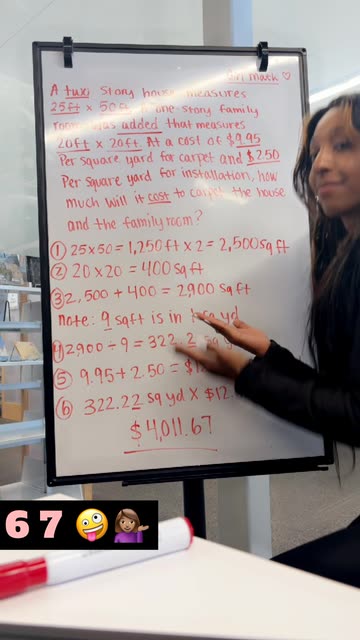 Girl Mack ♡
A two story house measures
25ft x 50ft. A one story family
room was added that measures
20ft x 20ft. At a cost of $9.95
Per square yard for carpet and $2.50
Per square yard for installation, how
much will it cost to carpet the house
and the family room?
① 25x50 = 1,250ft x 2 = 2,500sqft
② 20x20 = 400sqft
③ 2,500 + 400 = 2,900 sqft
note: 9 sqft is in yd
④ 2,900 ÷ 9 = 322.2 sq
⑤ 9.95 + 2.50 =
⑥ 322.22 sq yd x $12.
$4,011.67
6 7 🤪💁🏽‍♀️